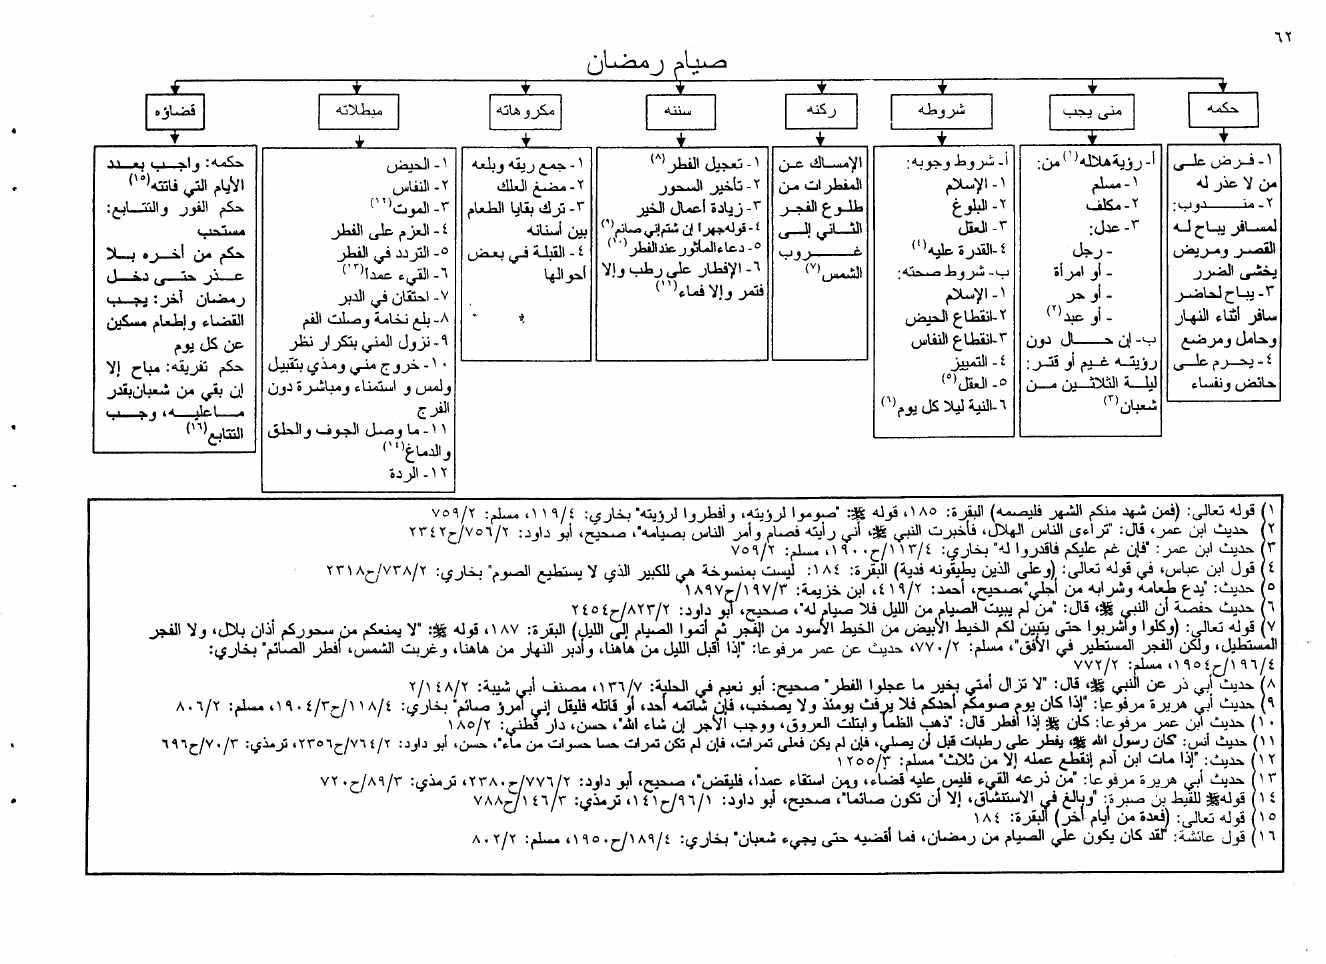 ٦٢
صيام رمضان
حكمه
١- فرض على
من لا عذر له
٢- مندوب:
لمسافر يباح له
القصر ومريض
يخشى الضرر
٣- يباح لحاضر
سافر أثناء النهار
وحامل ومرضع
٤- يحرم على
حائض ونفساء
متى يجب
أ- رؤية هلاله(١) من:
١- مسلم
٢- مكلف
٣- عدل:
- رجل
- أو امرأة
- أو حر
- أو عبد(٢)
ب- إن حال دون
رؤيته غيم أو قتر:
ليلة الثلاثين من
شعبان(٣)
شروطه
أ- شروط وجوبه:
١- الإسلام
٢- البلوغ
٣- العقل
٤- القدرة عليه(٤)
ب- شروط صحته:
١- الإسلام
٢- انقطاع الحيض
٣- انقطاع النفاس
٤- التمييز
٥- العقل(٥)
٦- النية ليلا كل يوم(٦)
ركنه
الإمساك عن
المفطرات من
طلوع الفجر
الثاني إلى
غروب
الشمس(٧)
سننه
١- تعجيل الفطر(٨)
٢- تأخير السحور
٣- زيادة أعمال الخير
٤- قوله جهرا إن شتم إني صائم(٩)
٥- دعاء المأثور عند الفطر(١٠)
٦- الإفطار على رطب وإلا
فتمر وإلا فماء(١١)
مكروهاته
١- جمع ريقه وبلعه
٢- مضغ العلك
٣- ترك بقايا الطعام
بين أسنانه
٤- القبلة في بعض
أحوالها
مبطلاته
١- الحيض
٢- النفاس
٣- الموت(١٢)
٤- العزم على الفطر
٥- التردد في الفطر
٦- القيء عمداً(١٣)
٧- احتقان في الدبر
٨- بلع نخامة وصلت الفم
٩- نزول المني بتكرار نظر
١٠- خروج مني ومذي بتقبيل
ولمس و استمناء ومباشرة دون
الفرج
١١- ما وصل الجوف والحلق
والدماغ(١٤)
١٢- الردة
قضاؤه
حكمه: واجب بعدد
الأيام التي فاتته(١٥)
حكم الفور والتتابع:
مستحب
حكم من أخره بلا
عذر حتى دخل
رمضان آخر: يجب
القضاء وإطعام مسكين
عن كل يوم
حكم تفريقه: مباح إلا
إن بقي من شعبان بقدر
ما عليه، وجب
التتابع(١٦)
١) قوله تعالى: (فمن شهد منكم الشهر فليصمه) البقرة: ١٨٥، قوله ﷺ: "صوموا لرؤيته، وأفطروا لرؤيته" بخاري: ١١٩/٤، مسلم: ٧٥٩/٢
٢) حديث ابن عمر، قال: "تراءى الناس الهلال، فأخبرت النبي ﷺ، أني رأيته فصام وأمر الناس بصيامه"، صحيح، أبو داود: ٧٥٦/٢/ح٢٣٤٢
٣) حديث ابن عمر: "فإن غم عليكم فاقدروا له" بخاري: ١١٣/٤/ح١٩٠٠، مسلم: ٧٥٩/٢
٤) قول ابن عباس، في قوله تعالى: (وعلى الذين يطيقونه فدية) البقرة: ١٨٤: ليست بمنسوخة هي للكبير الذي لا يستطيع الصوم" بخاري: ٧٣٨/٢/ح٢٣١٨
٥) حديث: "يدع طعامه وشرابه من أجلي"، صحيح، أحمد: ٤١٩/٢، ابن خزيمة: ١٩٧/٣/ح١٨٩٧
٦) حديث حفصة أن النبي ﷺ، قال: "من لم يبيت الصيام من الليل فلا صيام له"، صحيح، أبو داود: ٨٢٣/٢/ح٢٤٥٤
٧) قوله تعالى: (وكلوا وأشربوا حتى يتبين لكم الخيط الأبيض من الخيط الأسود من الفجر ثم أتموا الصيام إلى الليل) البقرة: ١٨٧، قوله ﷺ: "لا يمنعكم من سحوركم أذان بلال، ولا الفجر
المستطيل، ولكن الفجر المستطير في الأفق"، مسلم: ٧٧٠/٢، حديث عن عمر مرفوعا: "إذا أقبل الليل من هاهنا، وأدبر النهار من هاهنا، وغربت الشمس، أفطر الصائم" بخاري:
١٩٦/٤/ح١٩٥٤، مسلم: ٧٧٢/٢
٨) حديث أبي ذر عن النبي ﷺ، قال: "لا تزال أمتي بخير ما عجلوا الفطر" صحيح: أبو نعيم في الحلية: ١٣٦/٧، مصنف أبي شيبة: ١٤٨/٢/٢
٩) حديث أبي هريرة مرفوعا: "إذا كان يوم صومكم أحدكم فلا يرفث يومئذ ولا يصخب، فإن شاتمه أحد، أو قاتله فليقل إني أمرؤ صائم" بخاري: ١١٨/٤/ح١٩٠٤/٣، مسلم: ٨٠٦/٢
١٠) حديث ابن عمر مرفوعا: كان ﷺ إذا أفطر قال: "ذهب الظمأ وابتلت العروق، ووجب الأجر إن شاء الله"، حسن، دار قطني: ١٨٥/٢
١١) حديث أنس: "كان رسول الله ﷺ، يفطر على رطبات قبل أن يصلي، فإن لم يكن فعلى تمرات، فإن لم تكن تمرات حسا حسوات من ماء"، حسن، أبو داود: ٧٦٤/٢/ح٢٣٥٦، ترمذي: ٧٠/٣/ح٦٩٦
١٢) حديث: "إذا مات ابن آدم إنقطع عمله إلا من ثلاث" مسلم: ١٢٥٥/٣
١٣) حديث أبي هريرة مرفوعا: "من ذرعه القيء فليس عليه قضاء، ومن استقاء عمداً، فليقض"، صحيح، أبو داود: ٧٧٦/٢/ح٢٣٨٠، ترمذي: ٨٩/٣/ح٧٢٠
١٤) قوله ﷺ للقيط بن صبرة: "وبالغ في الاستنشاق، إلا أن تكون صائما"، صحيح، أبو داود: ٩٦/١/ح١٤١، ترمذي: ١٤٦/٣/ح٧٨٨
١٥) قوله تعالى: (فعدة من أيام أخر) البقرة: ١٨٤
١٦) قول عائشة: "لقد كان يكون علي الصيام من رمضان، فما أقضيه حتى يجيء شعبان" بخاري: ١٨٩/٤/ح١٩٥٠، مسلم: ٨٠٢/٢